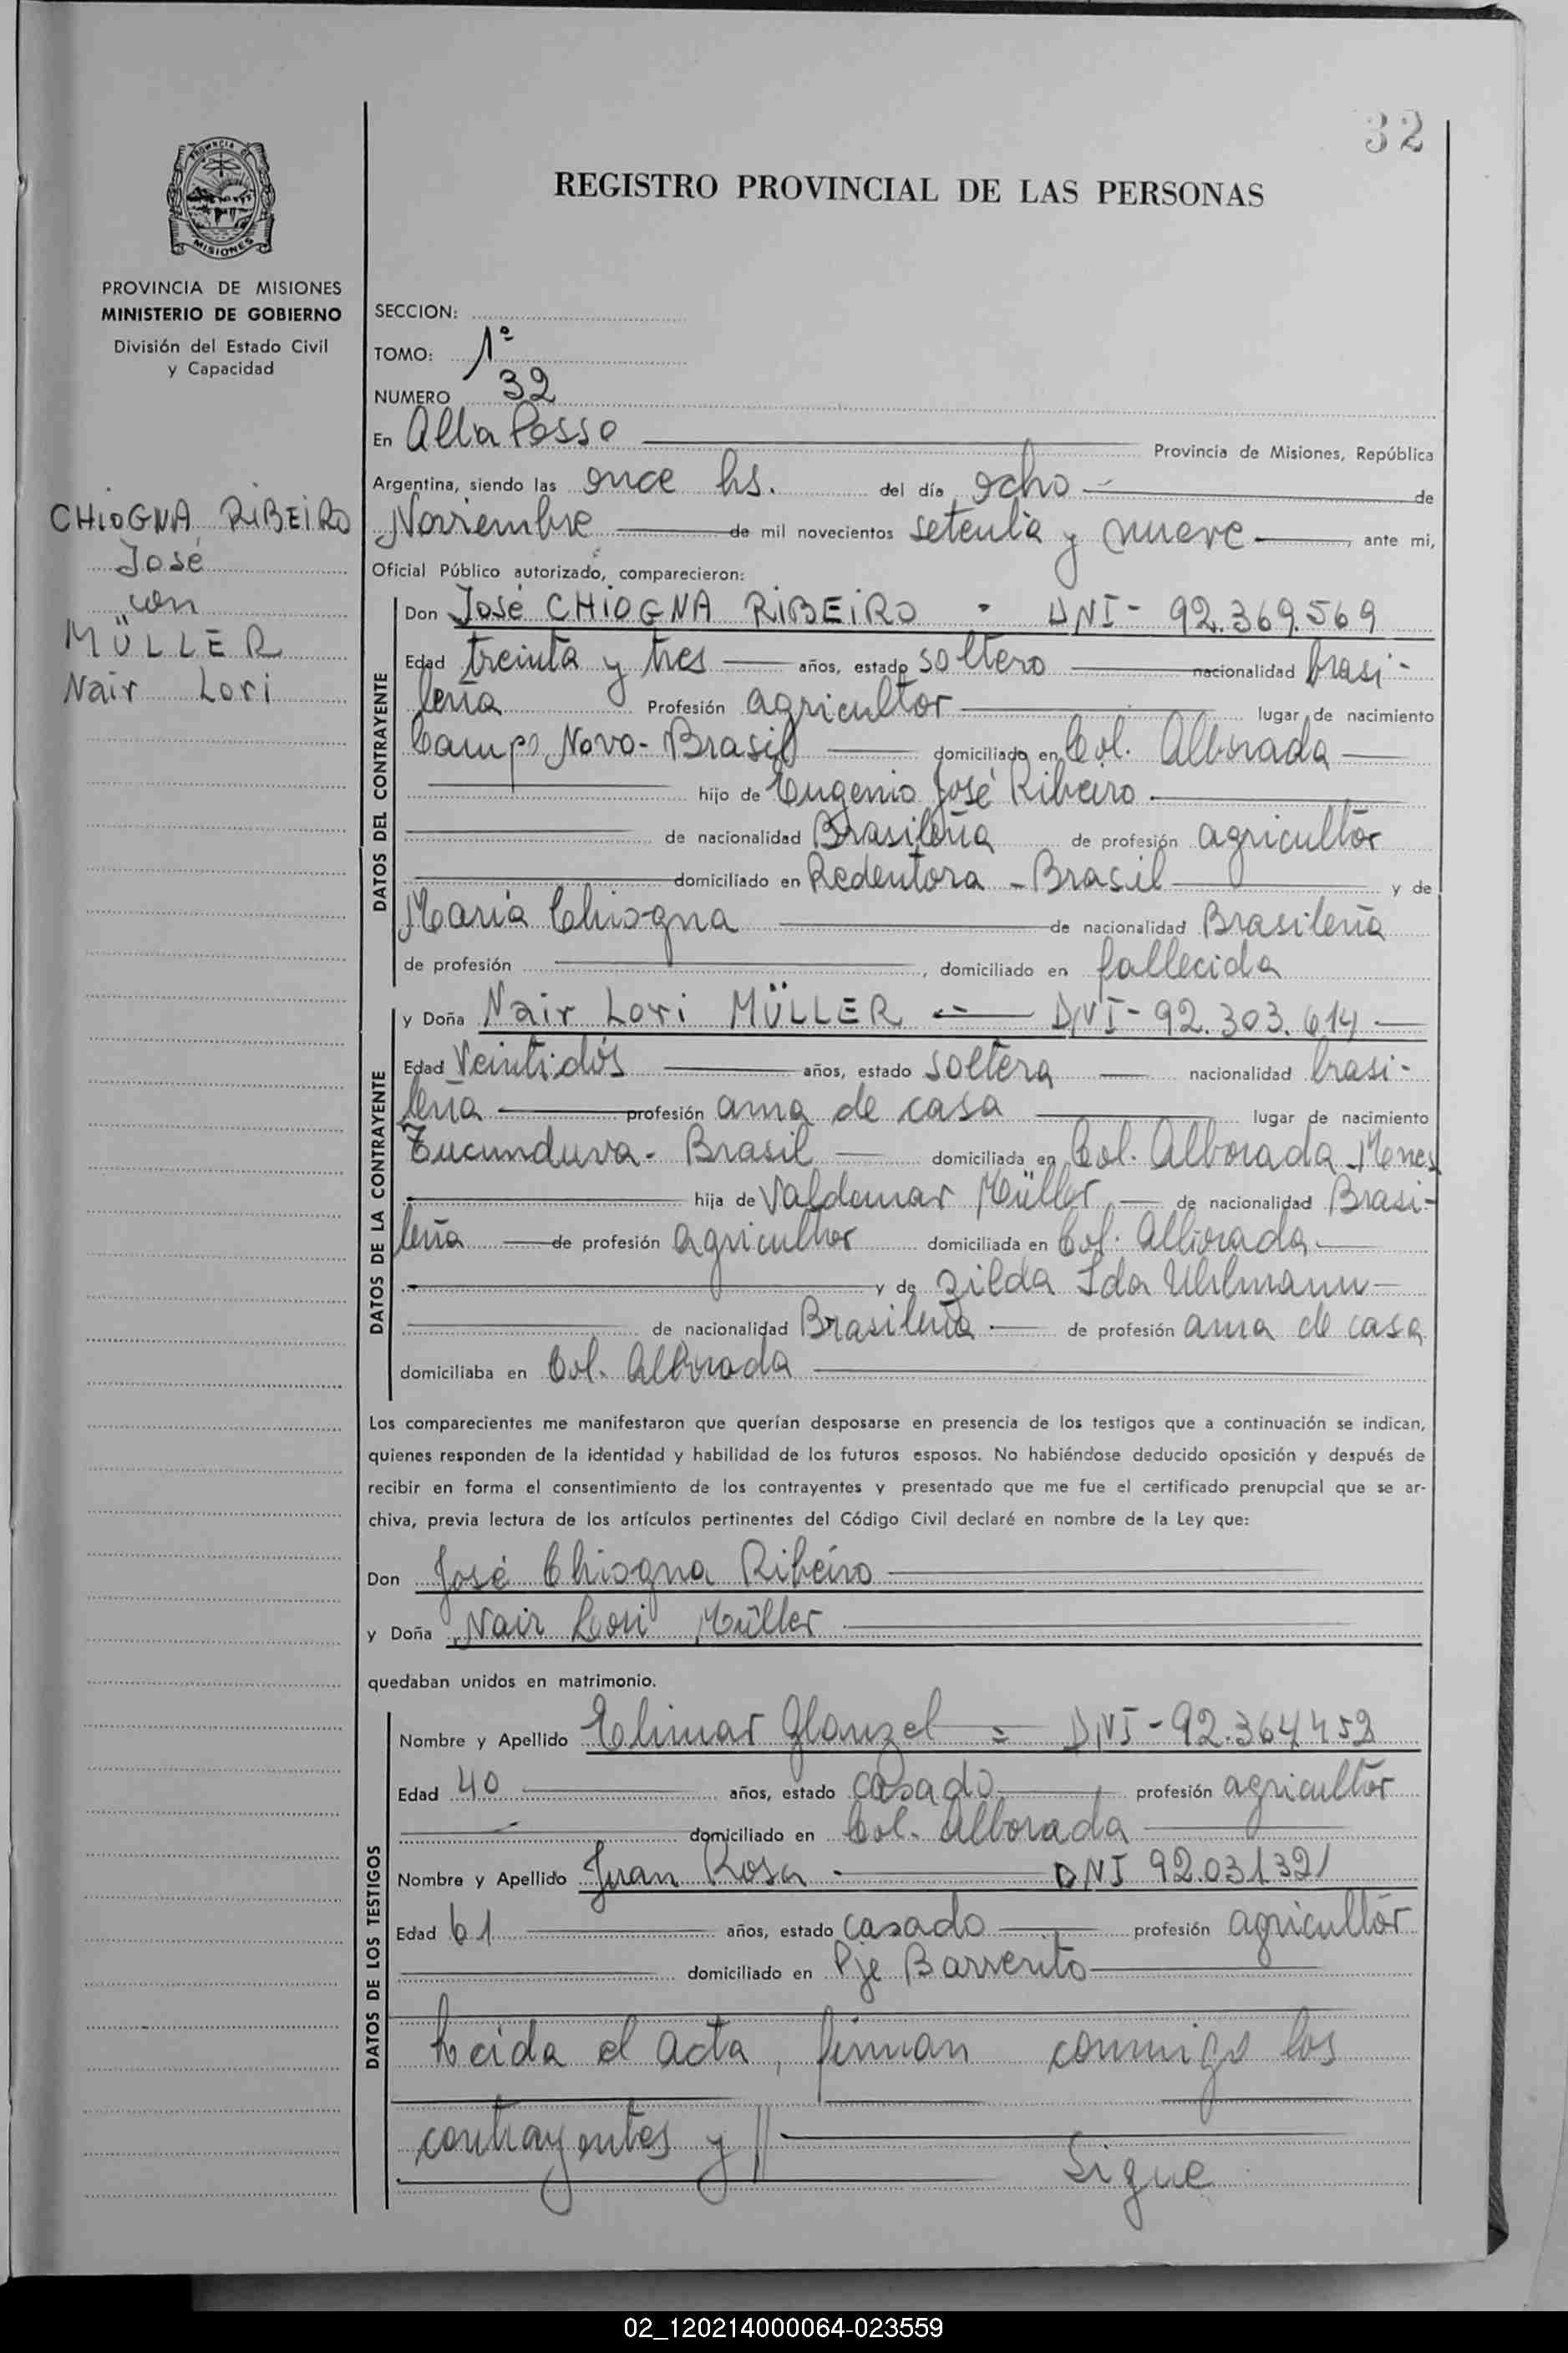 32
REGISTRO PROVINCIAL DE LAS PERSONAS
PROVINCIA DE MISIONES
MINISTERIO DE GOBIERNO
División del Estado Civil
y Capacidad
CHIOGNA RIBEIRO
José
con
MÜLLER
Nair Lori
SECCION:
TOMO: 1º
NUMERO 32
En Alba Posse Provincia de Misiones, República
Argentina, siendo las once hs. del día ocho de
Noviembre de mil novecientos setenta y nueve, ante mi,
Oficial Público autorizado, comparecieron:
DATOS DEL CONTRAYENTE
Don José CHIOGNA RIBEIRO - DNI - 92.369.569
Edad treinta y tres años, estado soltero nacionalidad brasi-
leña Profesión agricultor lugar de nacimiento
Campo Novo - Brasil domiciliado en Col. Alborada
hijo de Eugenio José Ribeiro
de nacionalidad Brasileña de profesión agricultor
domiciliado en Redentora - Brasil y de
María Chiogna de nacionalidad Brasileña
de profesión , domiciliado en fallecida
DATOS DE LA CONTRAYENTE
y Doña Nair Lori MÜLLER DNI - 92.303.614
Edad Veintidós años, estado soltera nacionalidad brasi-
leña profesión ama de casa lugar de nacimiento
Tucunduva - Brasil domiciliada en Col. Alborada
hija de Valdemar Müller de nacionalidad Brasi-
leña de profesión agricultor domiciliada en Col. Alborada
y de Zilda Ida Uhlmann
de nacionalidad Brasileña de profesión ama de casa
domiciliaba en Col. Alborada
Los comparecientes me manifestaron que querían desposarse en presencia de los testigos que a continuación se indican,
quienes responden de la identidad y habilidad de los futuros esposos. No habiéndose deducido oposición y después de
recibir en forma el consentimiento de los contrayentes y presentado que me fue el certificado prenupcial que se ar-
chiva, previa lectura de los artículos pertinentes del Código Civil declaré en nombre de la Ley que:
Don José Chiogna Ribeiro
y Doña Nair Lori Müller
quedaban unidos en matrimonio.
DATOS DE LOS TESTIGOS
Nombre y Apellido Elimar Glanzel = DNI - 92.364452
Edad 40 años, estado casado profesión agricultor
domiciliado en Col. Alborada
Nombre y Apellido Juan Rosa DNI 92.031.321
Edad 61 años, estado casado profesión agricultor
domiciliado en Pje Barrerito
Leida el acta, firman conmigo los
contrayentes y //
Sigue
02_120214000064-023559